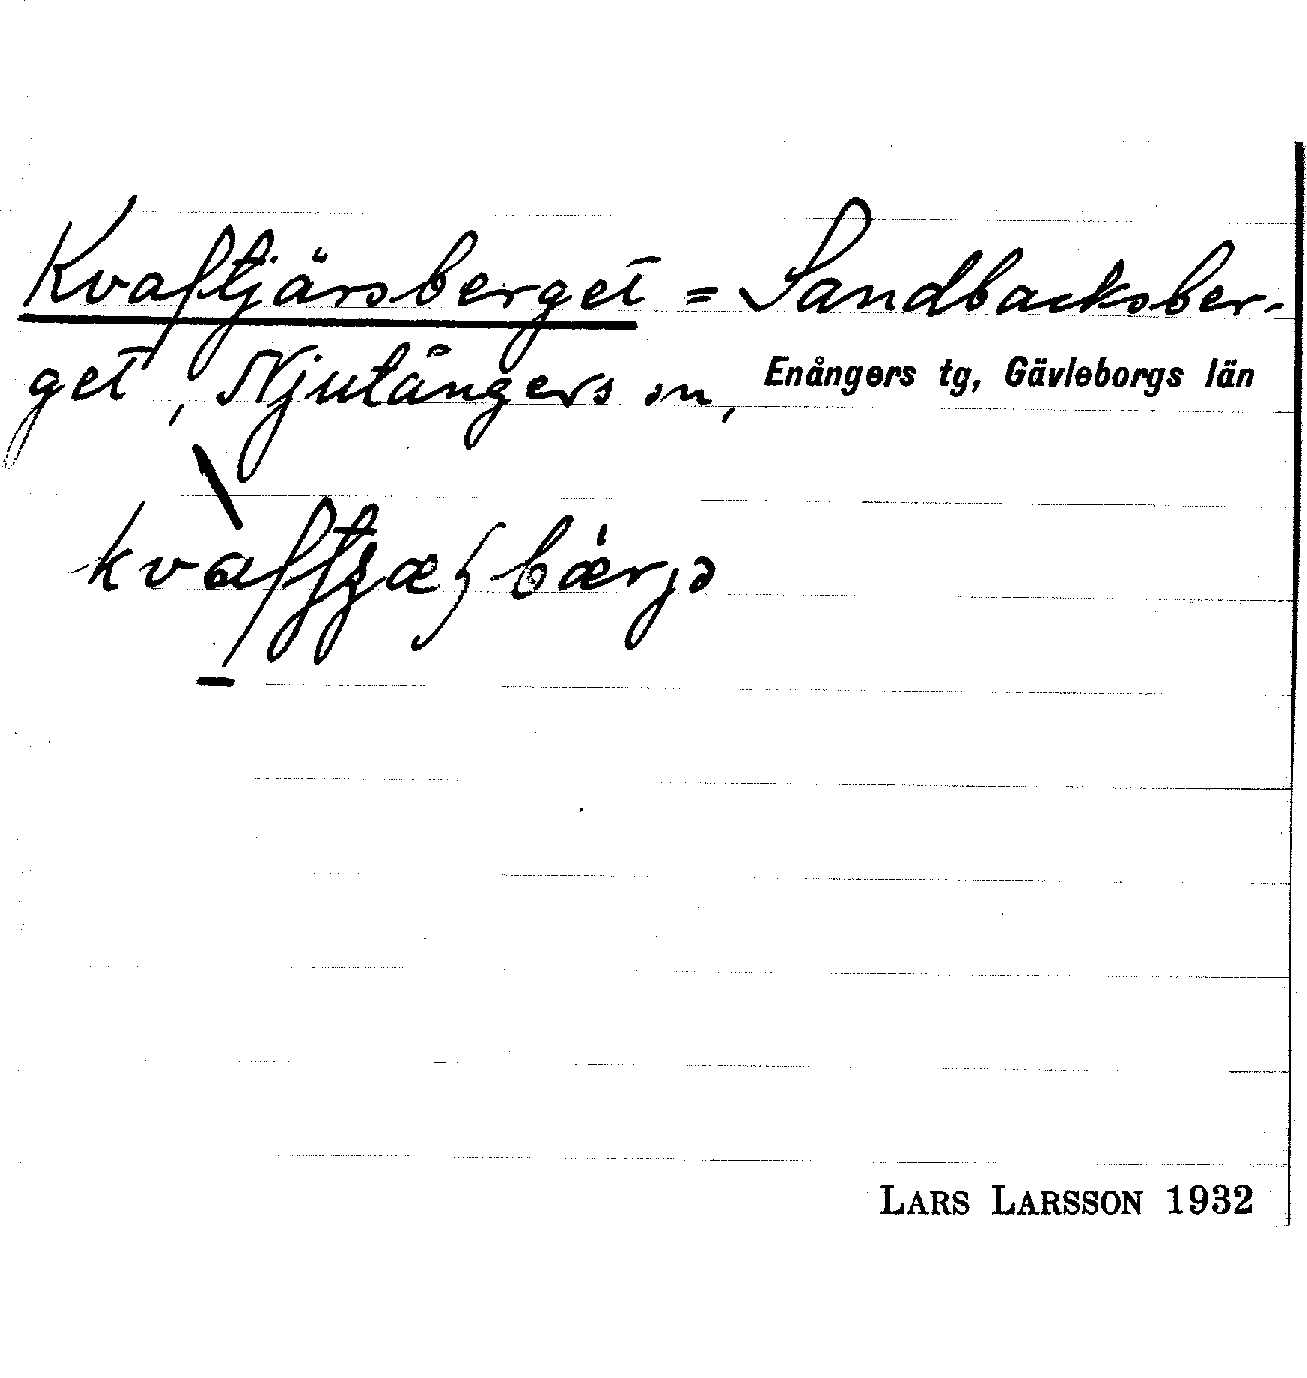 Kvaftjärsberget = Sandbacksber-
get, Njutångers sn, Enångers tg, Gävleborgs län
LARS LARSSON 1932